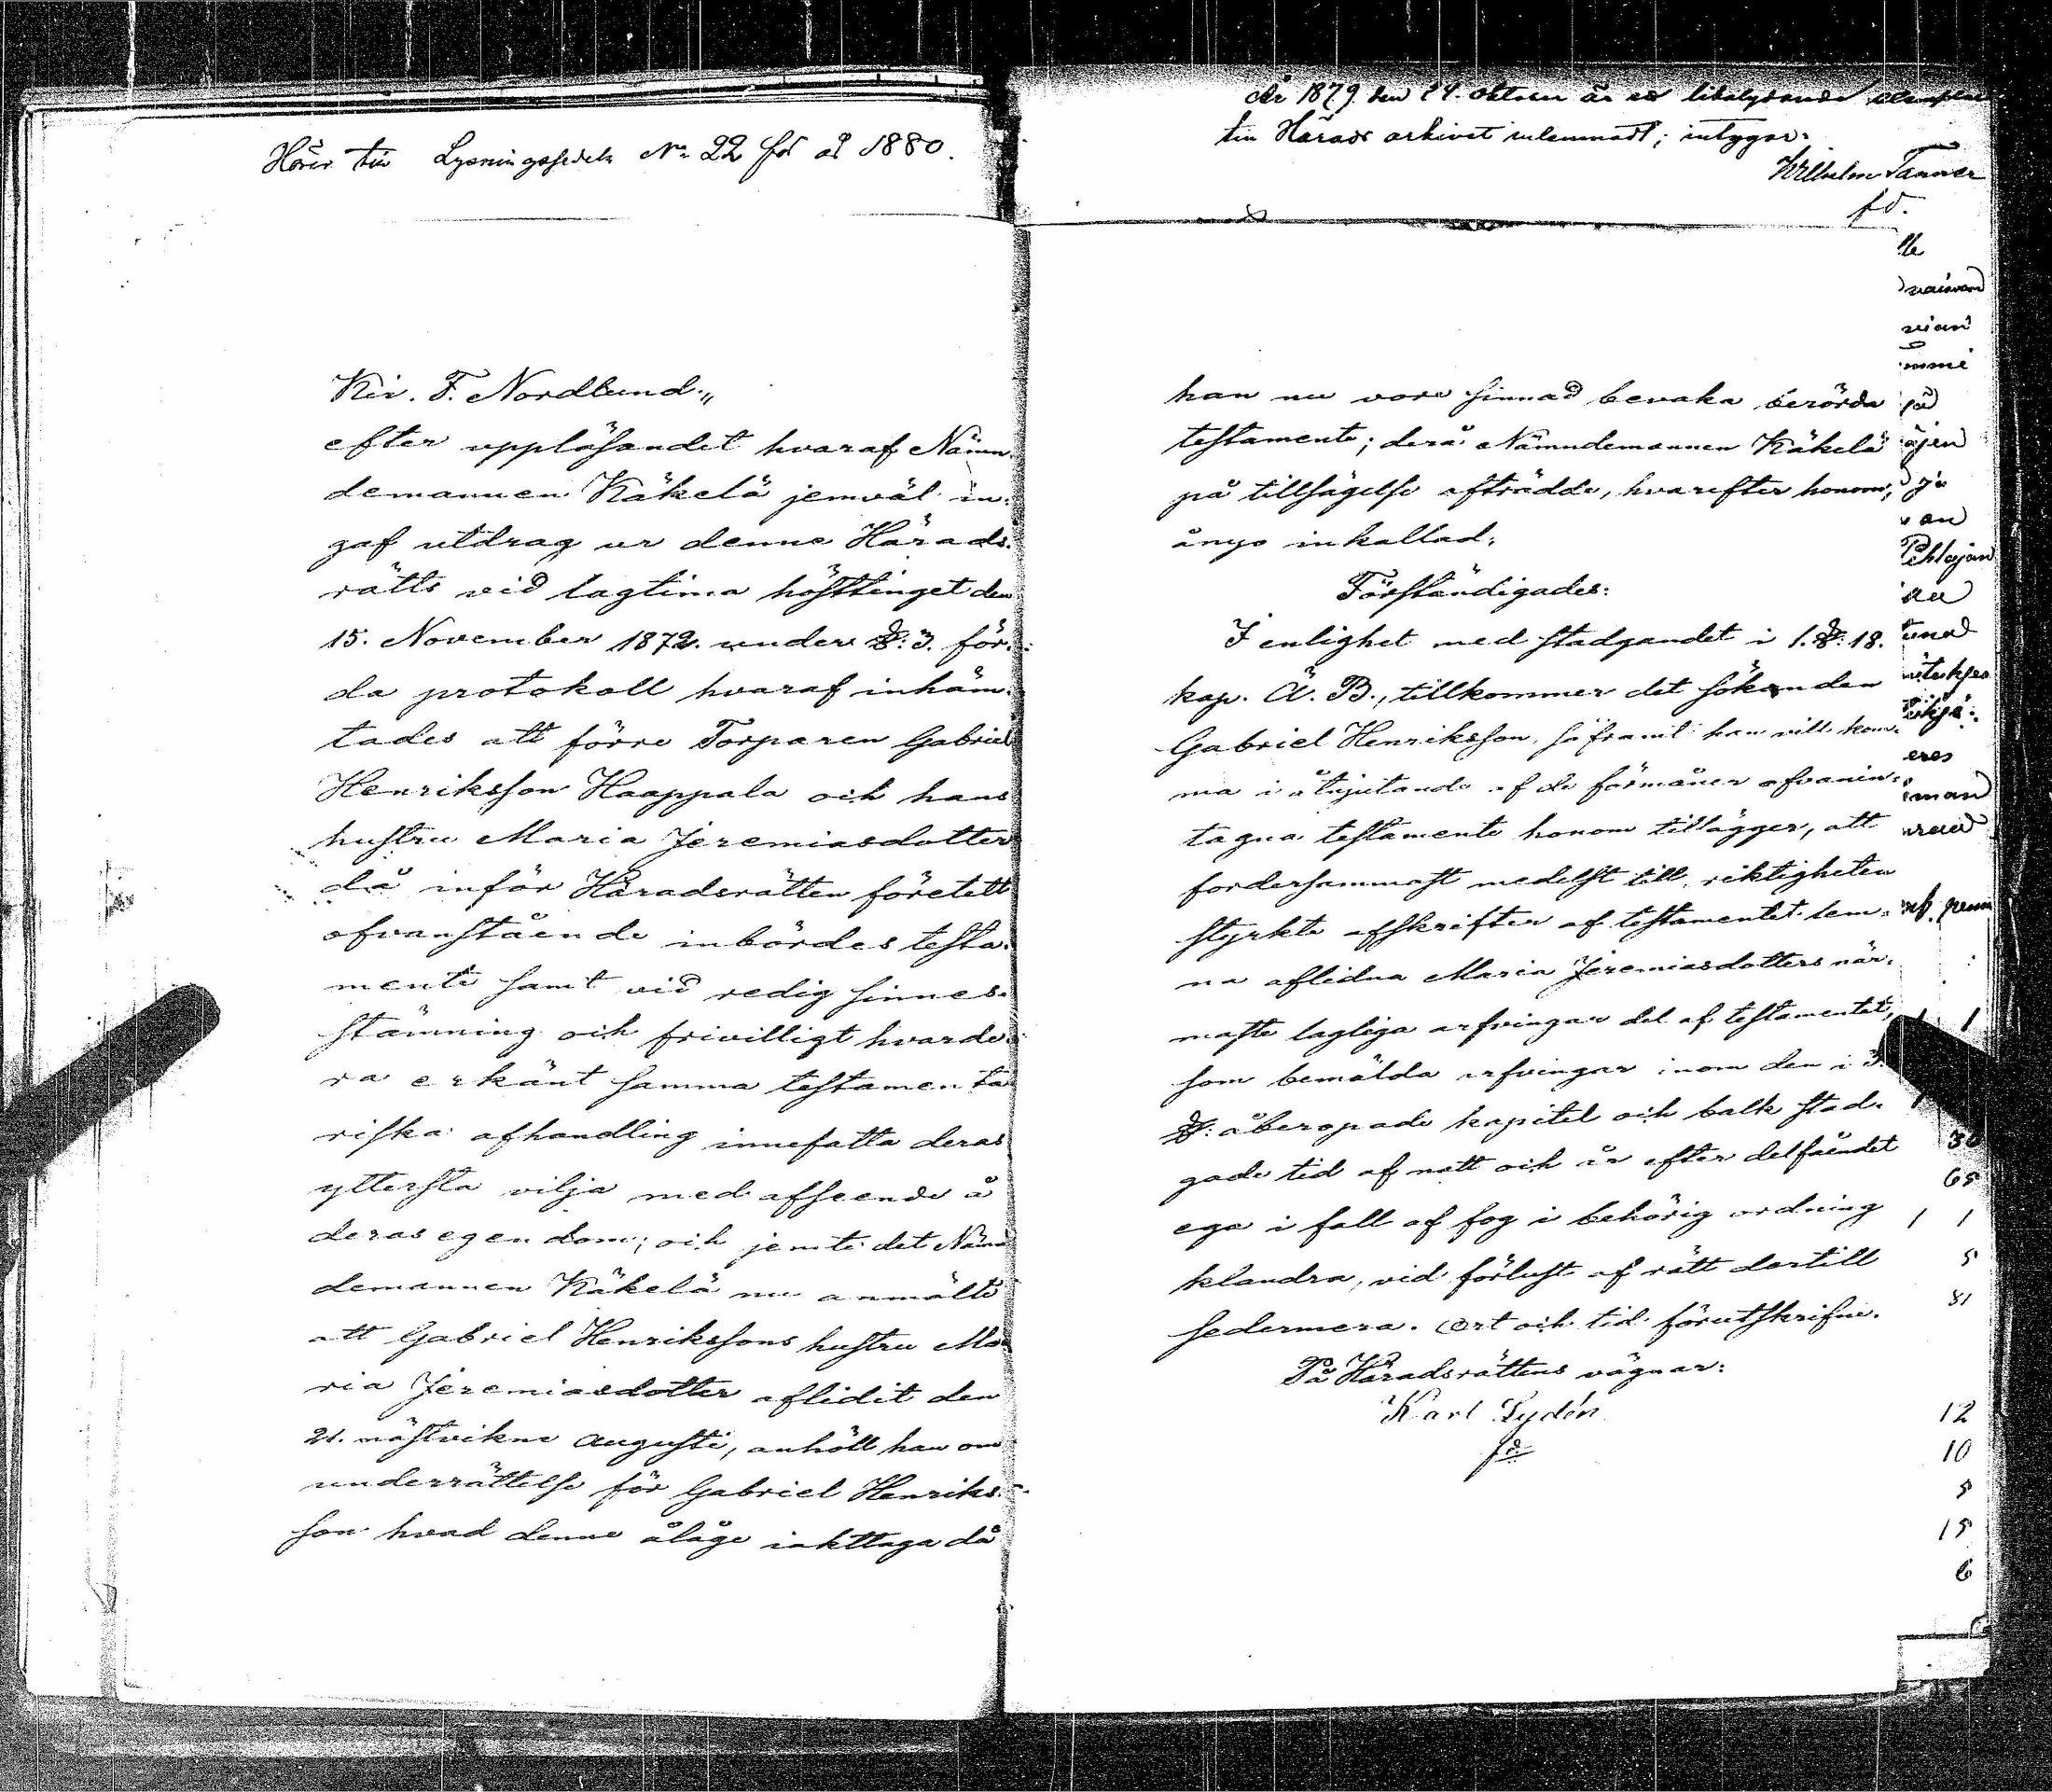 Hörer till Lysningssedeln No 22 för år 1880.
Kir. F. Nordlund.,,
efter uppläsandet hvaraf Nämn-
demannen Käkelä jemväl in-
gaf utdrag ur denne Härads-
rätts vid lagtima hösttinget den
15. November 1872. under §: 3. för-
da protokoll hvaraf inhäm-
tades att förre Torparen Gabriel
Henriksson Haappala och hans
hustru Maria Jeremiasdotter
då inför Häradsrätten företett
ofvanstående inbördes testa-
mente samt vid redig sinnes-
stämning och frivilligt hvarde-
ra erkänt samma testamenta
riska afhandling innefatta deras
yttersta vilja med afseende å
deras egendom; och jemte det Nämn
demannen Käkelä nu anmälte
att Gabriel Henrikssons hustru Ma-
ria Jeremiasdotter aflidit den
21. nästvikne Augusti, anhöll han om
underrättelse för Gabriel Henriks-
son hvad denne ålåge iakttaga då
År 1879 den 24. oktober är ett likalydande exemplar
till Härads arkivet inlemnadt; intygar:
Wilhelm Tanner
han nu vore sinnad bevaka berörda
testamente; derå Nämndemannen Käkelä
på tillsägelse afträdde, hvarefter honom,
ånyo inkallad,
Förständigades:
I enlighet med stadgandet i 1. §: 18.
kap. Ä. B., tillkommer det sökanden
Gabriel Henriksson, såframt han vill kom-
ma i åtnjutande af de förmåner ofvanin-
tagna testamente honom tillägger, att
fordersammast medelst till riktigheten
styrkte afskrifter af testamentet lem-
na aflidna Maria Jeremiasdotters när-
maste lagliga arfvingar del af testamentet,
som bemälda arfvingar inom den i 3.
§: åberopade kapitel och balk stad-
gade tid af natt och år efter delfåendet
ega i fall af fog i behörig ordning
klandra, vid förlust af rätt dertill
sedermera. Ort och tid förutskrifne.
På Häradsrättens vägnar:
Karl Lydén
ajen
van
30
65
1 1
5
81
12
10
5
15
6